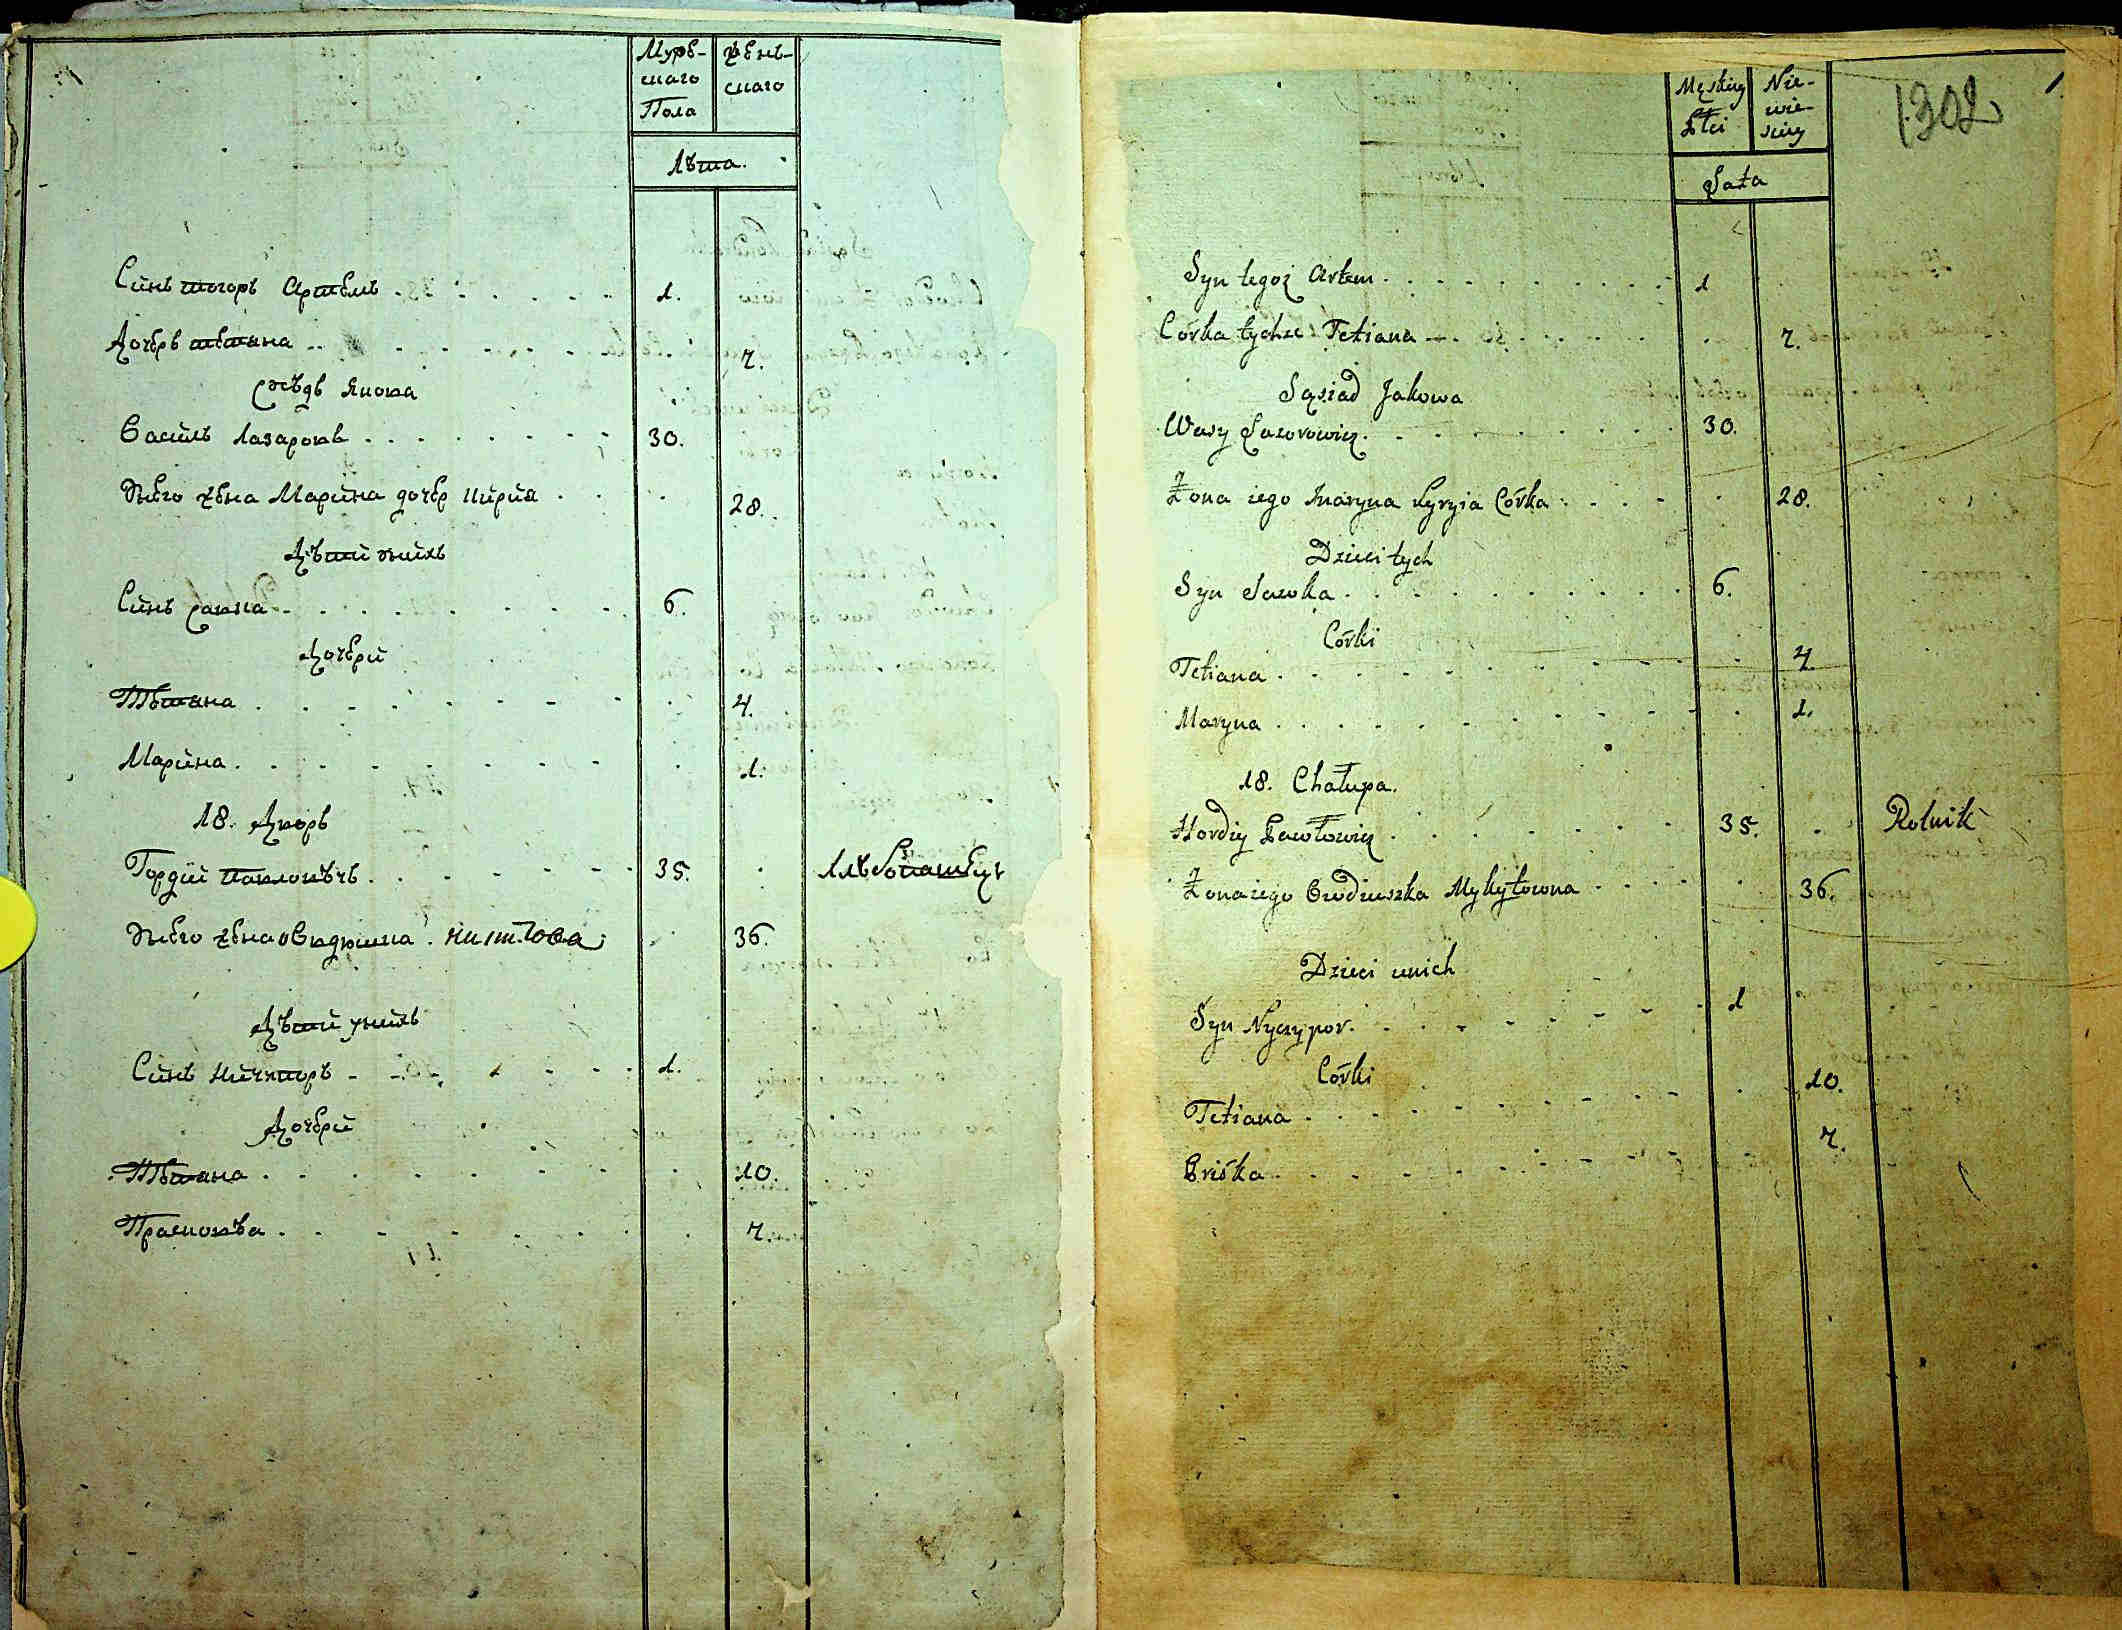 Муже-
скаго
Пола
Жень-
скаго
Лѣта.
Синъ тогоръ Артемъ 1.
Дочеръ тетяна 7.
Сусѣдъ Якова
Василь Лазаровъ 30.
жена Марина дочер Кирия 28.
Дѣти
Синъ Савка 6.
Дочери
Тетяна 4.
Марина 1.
18. Дворъ
Гордій Павловѣчъ 35.
жена Овидюшка Никитова 36.
Дѣти
Синъ Ничипоръ 1.
Дочери
Тетяна 10.
Прасковѣа 7.
Męskiey
Płci
Nie-
wie-
sciey
Lata
1302
Syn tegoż Artem 1
Córka tychże Tetiana 7.
Sąsiad Jakowa
Wasy Łazorowicz 30.
Żona iego Maryna Kyryia Córka 28.
Dzieci tych
Syn Sawka 6.
Córki
Tetiana 4.
Maryna 1.
18. Chałupa.
Hordiy Pawłowicz 35. Rolnik
Żona iego Owdiuszka Mykytowna 36.
Dzieci unich
Syn Nyczypor 1
Córki
Tetiana 10.
Priśka 7.